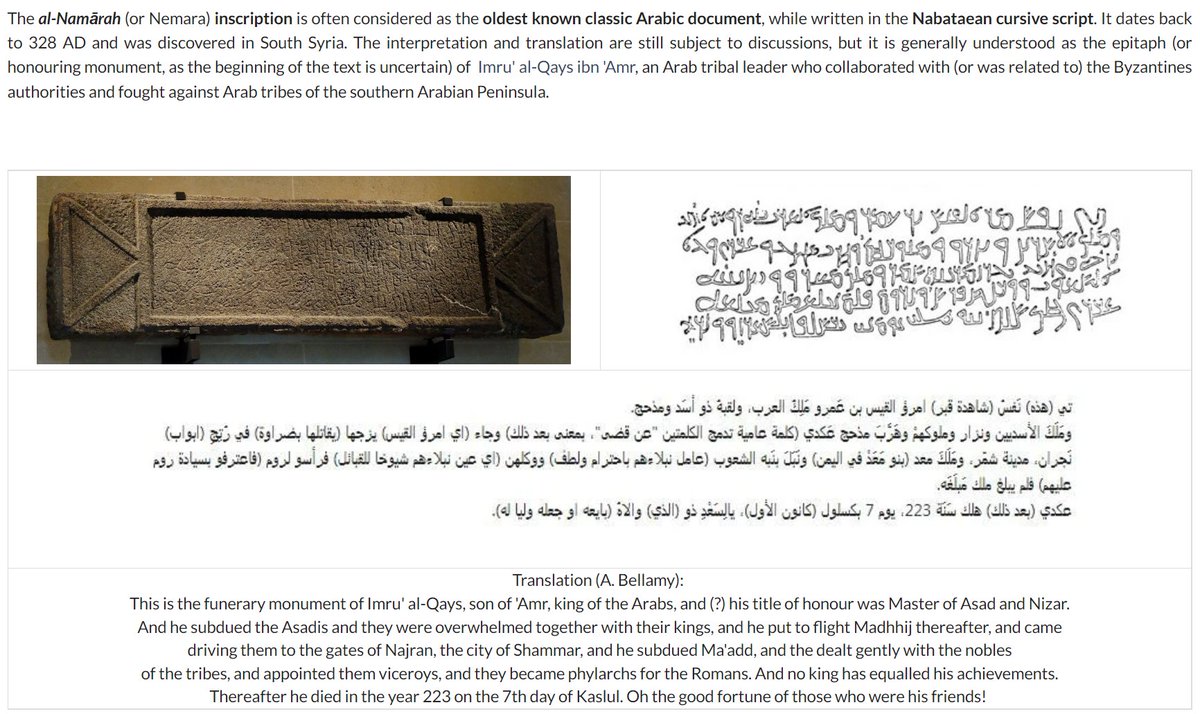 The al-Namārah (or Nemara) inscription is often considered as the oldest known classic Arabic document, while written in the Nabataean cursive script. It dates back
to 328 AD and was discovered in South Syria. The interpretation and translation are still subject to discussions, but it is generally understood as the epitaph (or
honouring monument, as the beginning of the text is uncertain) of Imru' al-Qays ibn 'Amr, an Arab tribal leader who collaborated with (or was related to) the Byzantines
authorities and fought against Arab tribes of the southern Arabian Peninsula.
تي (هذه) نَفسُ (شاهدة قبر) امرؤ القيس بن عَمرو مَلِكُ العرب، ولقبهُ ذو أسَد ومذحج.
ومَلَكَ الأسديين ونزار وملوكهمْ وهَرَّبَ مذحج عَكدي (كلمة عامية تدمج الكلمتين "عن قضى"، بمعنى بعد ذلك) وجاء (اي امرؤ القيس) يزجها (يقاتلها بضراوة) في رُتِجِ (ابواب)
نَجران، مدينة شمَّر، ومَلَكَ معد (بنو مَعَدْ في اليمن) ونَبَّلَ بنَبه الشعوب (عامل نبلاءهم باحترام ولطف) ووكلهن (اي عين نبلاءهم شيوخا للقبائل) فرأسو لروم (فاعترفو بسيادة روم
عليهم) فلم يبلغ ملك مَبلَغَه.
عكدي (بعد ذلك) هلك سَنَة 223، يوم 7 بكسلول (كانون الأول)، يالِسَعْدِ ذو (الذي) والاهُ (بايعه او جعله وليا له).
Translation (A. Bellamy):
This is the funerary monument of Imru' al-Qays, son of 'Amr, king of the Arabs, and (?) his title of honour was Master of Asad and Nizar.
And he subdued the Asadis and they were overwhelmed together with their kings, and he put to flight Madhhij thereafter, and came
driving them to the gates of Najran, the city of Shammar, and he subdued Ma'add, and the dealt gently with the nobles
of the tribes, and appointed them viceroys, and they became phylarchs for the Romans. And no king has equalled his achievements.
Thereafter he died in the year 223 on the 7th day of Kaslul. Oh the good fortune of those who were his friends!